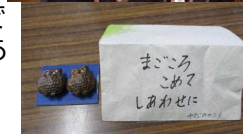 まごころ
こめて
しあわせに